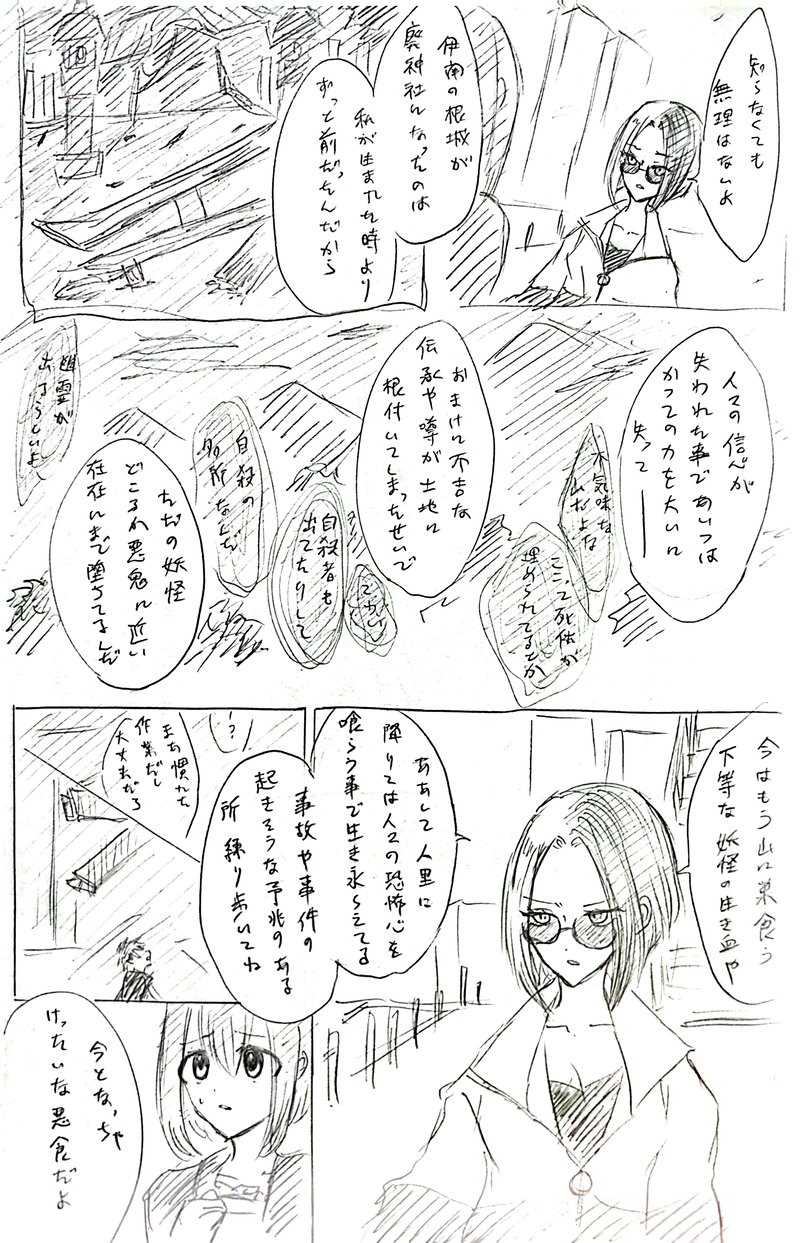 知らなくても
無理はないよ
伊南の根城が
廃神社になったのは
私が生まれた時より
ずっと前だったんだから
人々の信心が
失われた事であいつは
かつての力を大いに
失って――
不気味な
山だよな
ここって死体が
埋められてるとか
おまけに不吉な
伝承や噂が土地に
根付いてしまったせいで
こわい
自殺者も
出てたりして
自殺の
名所なんだ
ただの妖怪
どころか悪鬼に近い
存在にまで堕ちてるんだ
幽霊が
出るらしいよ
今はもう山に巣食う
下等な妖怪の生き血や
ああして人里に
降りては人々の恐怖心を
喰らう事で生き永らえてる
事故や事件の
起きそうな予兆のある
所 練り歩いてね
?
まあ慣れた
作業だし
大丈夫だろ
今となっちゃ
けったいな悪食だよ